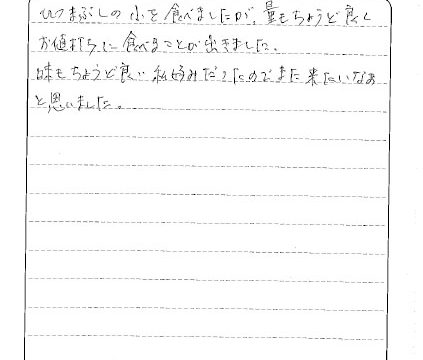 ひつまぶしの小を食べましたが、量もちょうど良く
お値打ちに食べることが出きました。
味もちょうど良い私好みだったのでまた来たいなぁ
と思いました。